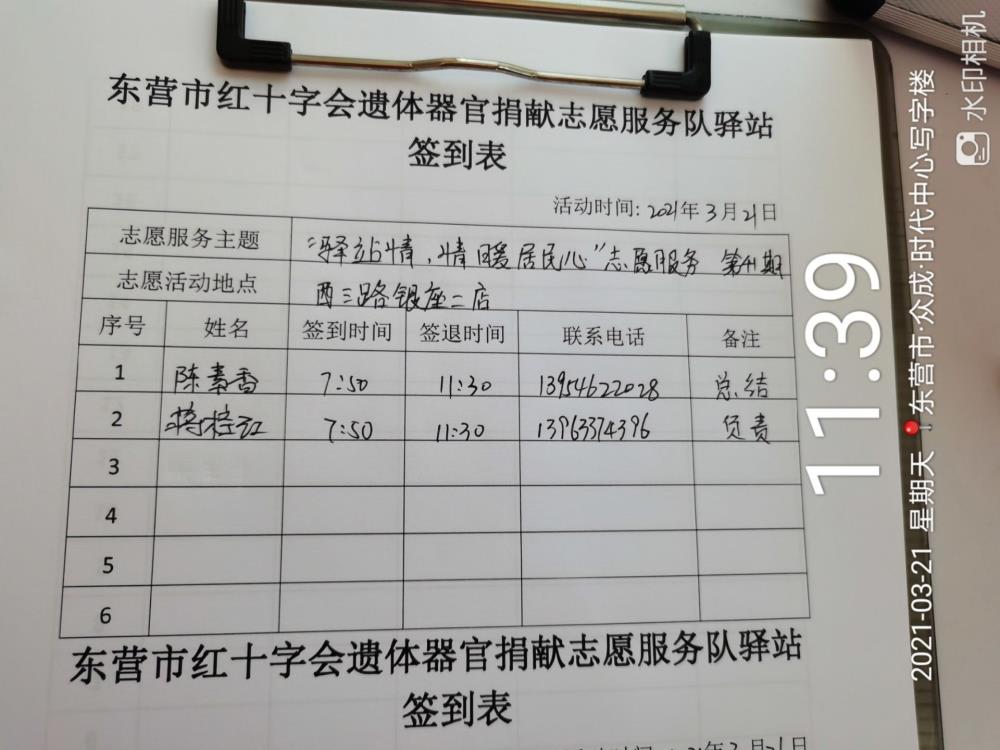 东营市红十字会遗体器官捐献志愿服务队驿站
签到表
活动时间: 2021年3月21日
志愿服务主题 “驿站情，情暖居民心”志愿服务 第41期
志愿活动地点 西三路银座二店
序号 姓名 签到时间 签退时间 联系电话 备注
1 陈素香 7:50 11:30 13954622028 总结
2 7:50 11:30 13963374396 负责
3
4
5
6
东营市红十字会遗体器官捐献志愿服务队驿站
签到表
21年3月21日
11:39
2021-03-21 星期天 东营市·众成·时代中心写字楼
水印相机